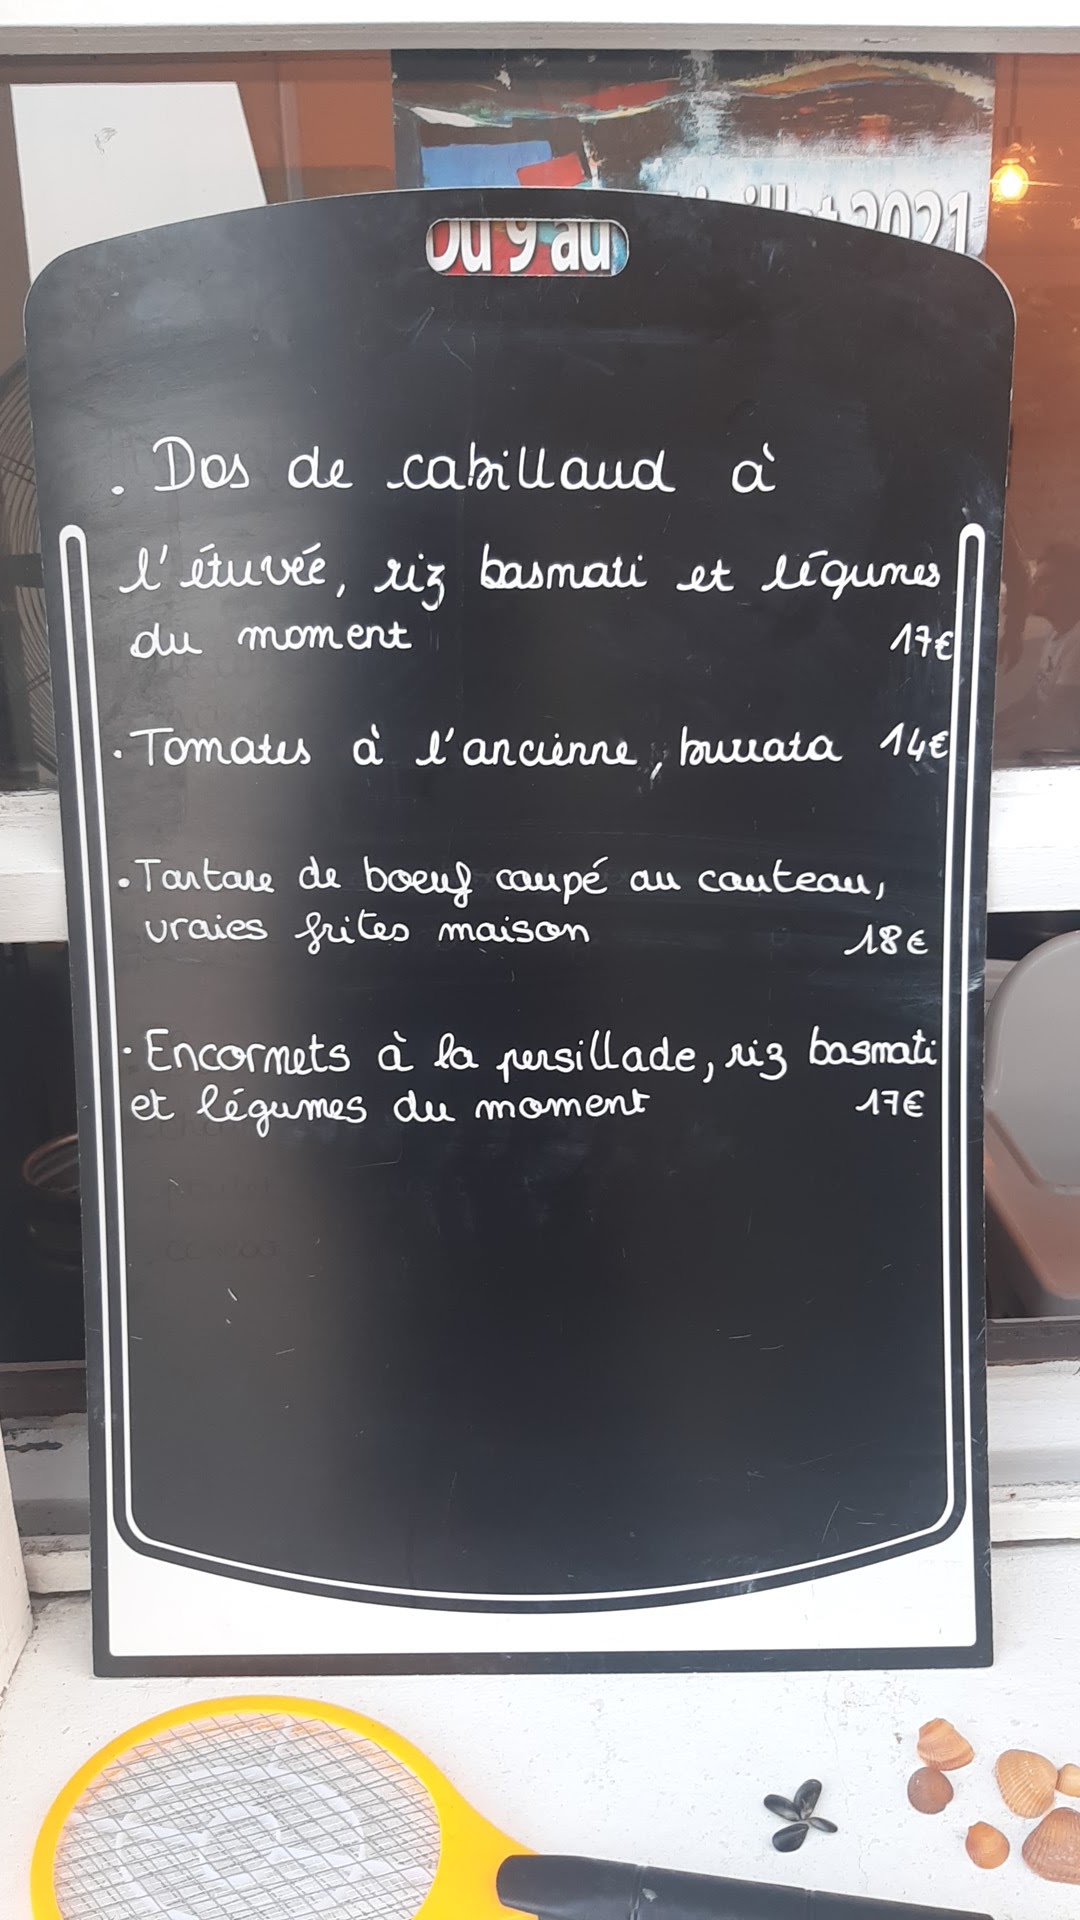 juillet 2021
Du 9 au
. Dos de cabillaud à
l'étuvée, riz basmati et légumes
du moment 17€
. Tomates à l'ancienne, burrata 14€
. Tartare de boeuf coupé au couteau,
vraies frites maison 18€
. Encornets à la persillade, riz basmati
et légumes du moment 17€